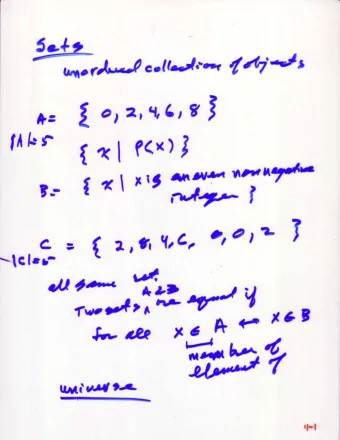 Sets
unordered collection of objects
A = { 0, 2, 4, 6, 8 }
|A| = 5
{ x | P(x) }
B = { x | x is an even nonnegative
integer }
C = { 2, 8, 4, 6, 0, 0, 2 }
|C| = 5
all same set.
A & B
Two sets ^ are equal if
for all x ∈ A ↔ x ∈ B
member of
element of
universe